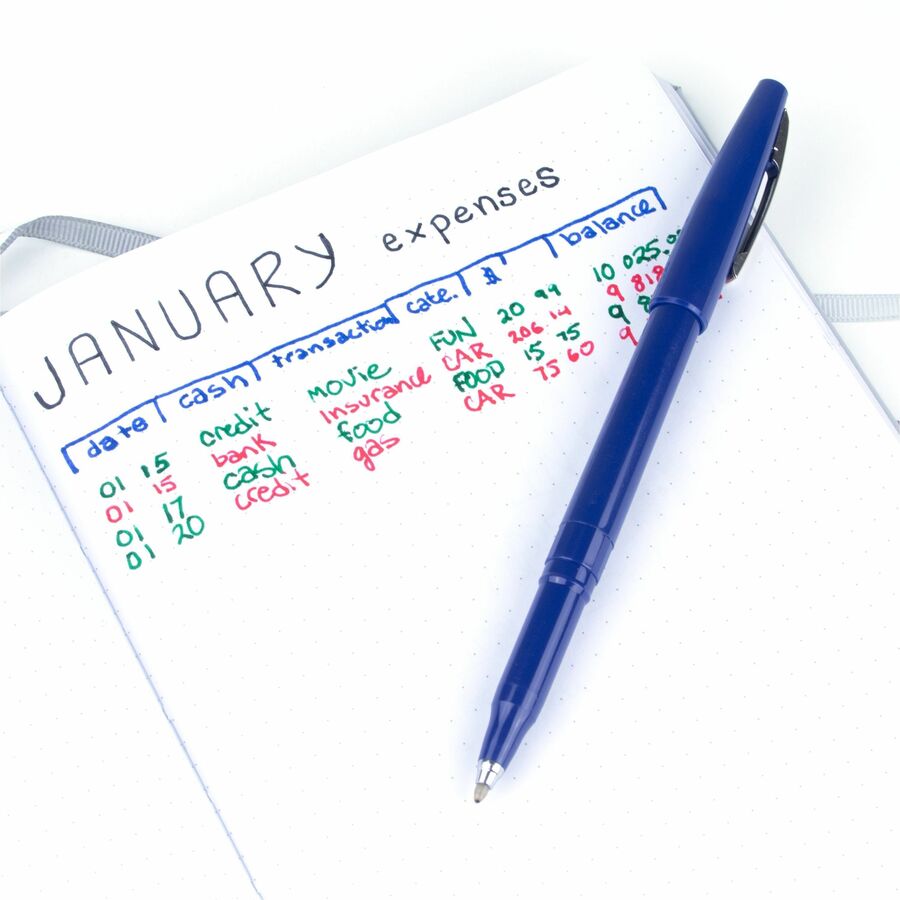 JANUARY expenses
date cash transaction cate. $ balance
01 15 credit movie FUN 20 99 10 025.
01 15 bank Insurance CAR 206 14 9 818
01 17 cash food FOOD 15 75 9
01 20 credit gas CAR 75 60 9